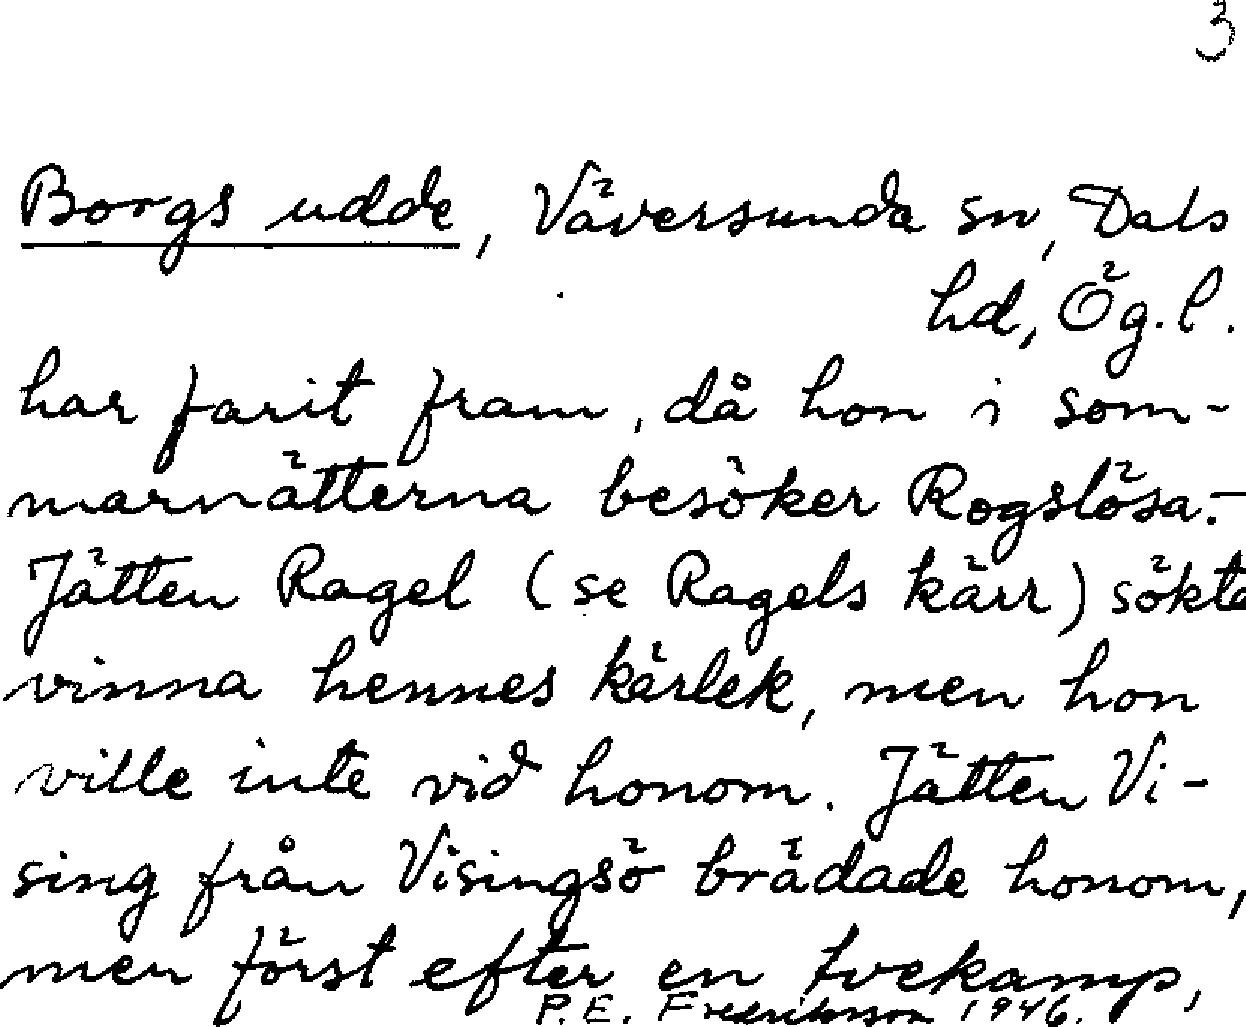 3
Borgs udde, Väversunda sn, Dals
hd, Ög. l.
har farit fram, då hon i som-
marnätterna besöker Rogslösa.-
Jätten Ragel (se Ragels kärr) sökte
vinna hennes kärlek, men hon
ville inte vid honom. Jätten Vi-
sing från Visingsö brädade honom,
men först efter en tvekamp,
P. E. Fredriksson 1946.